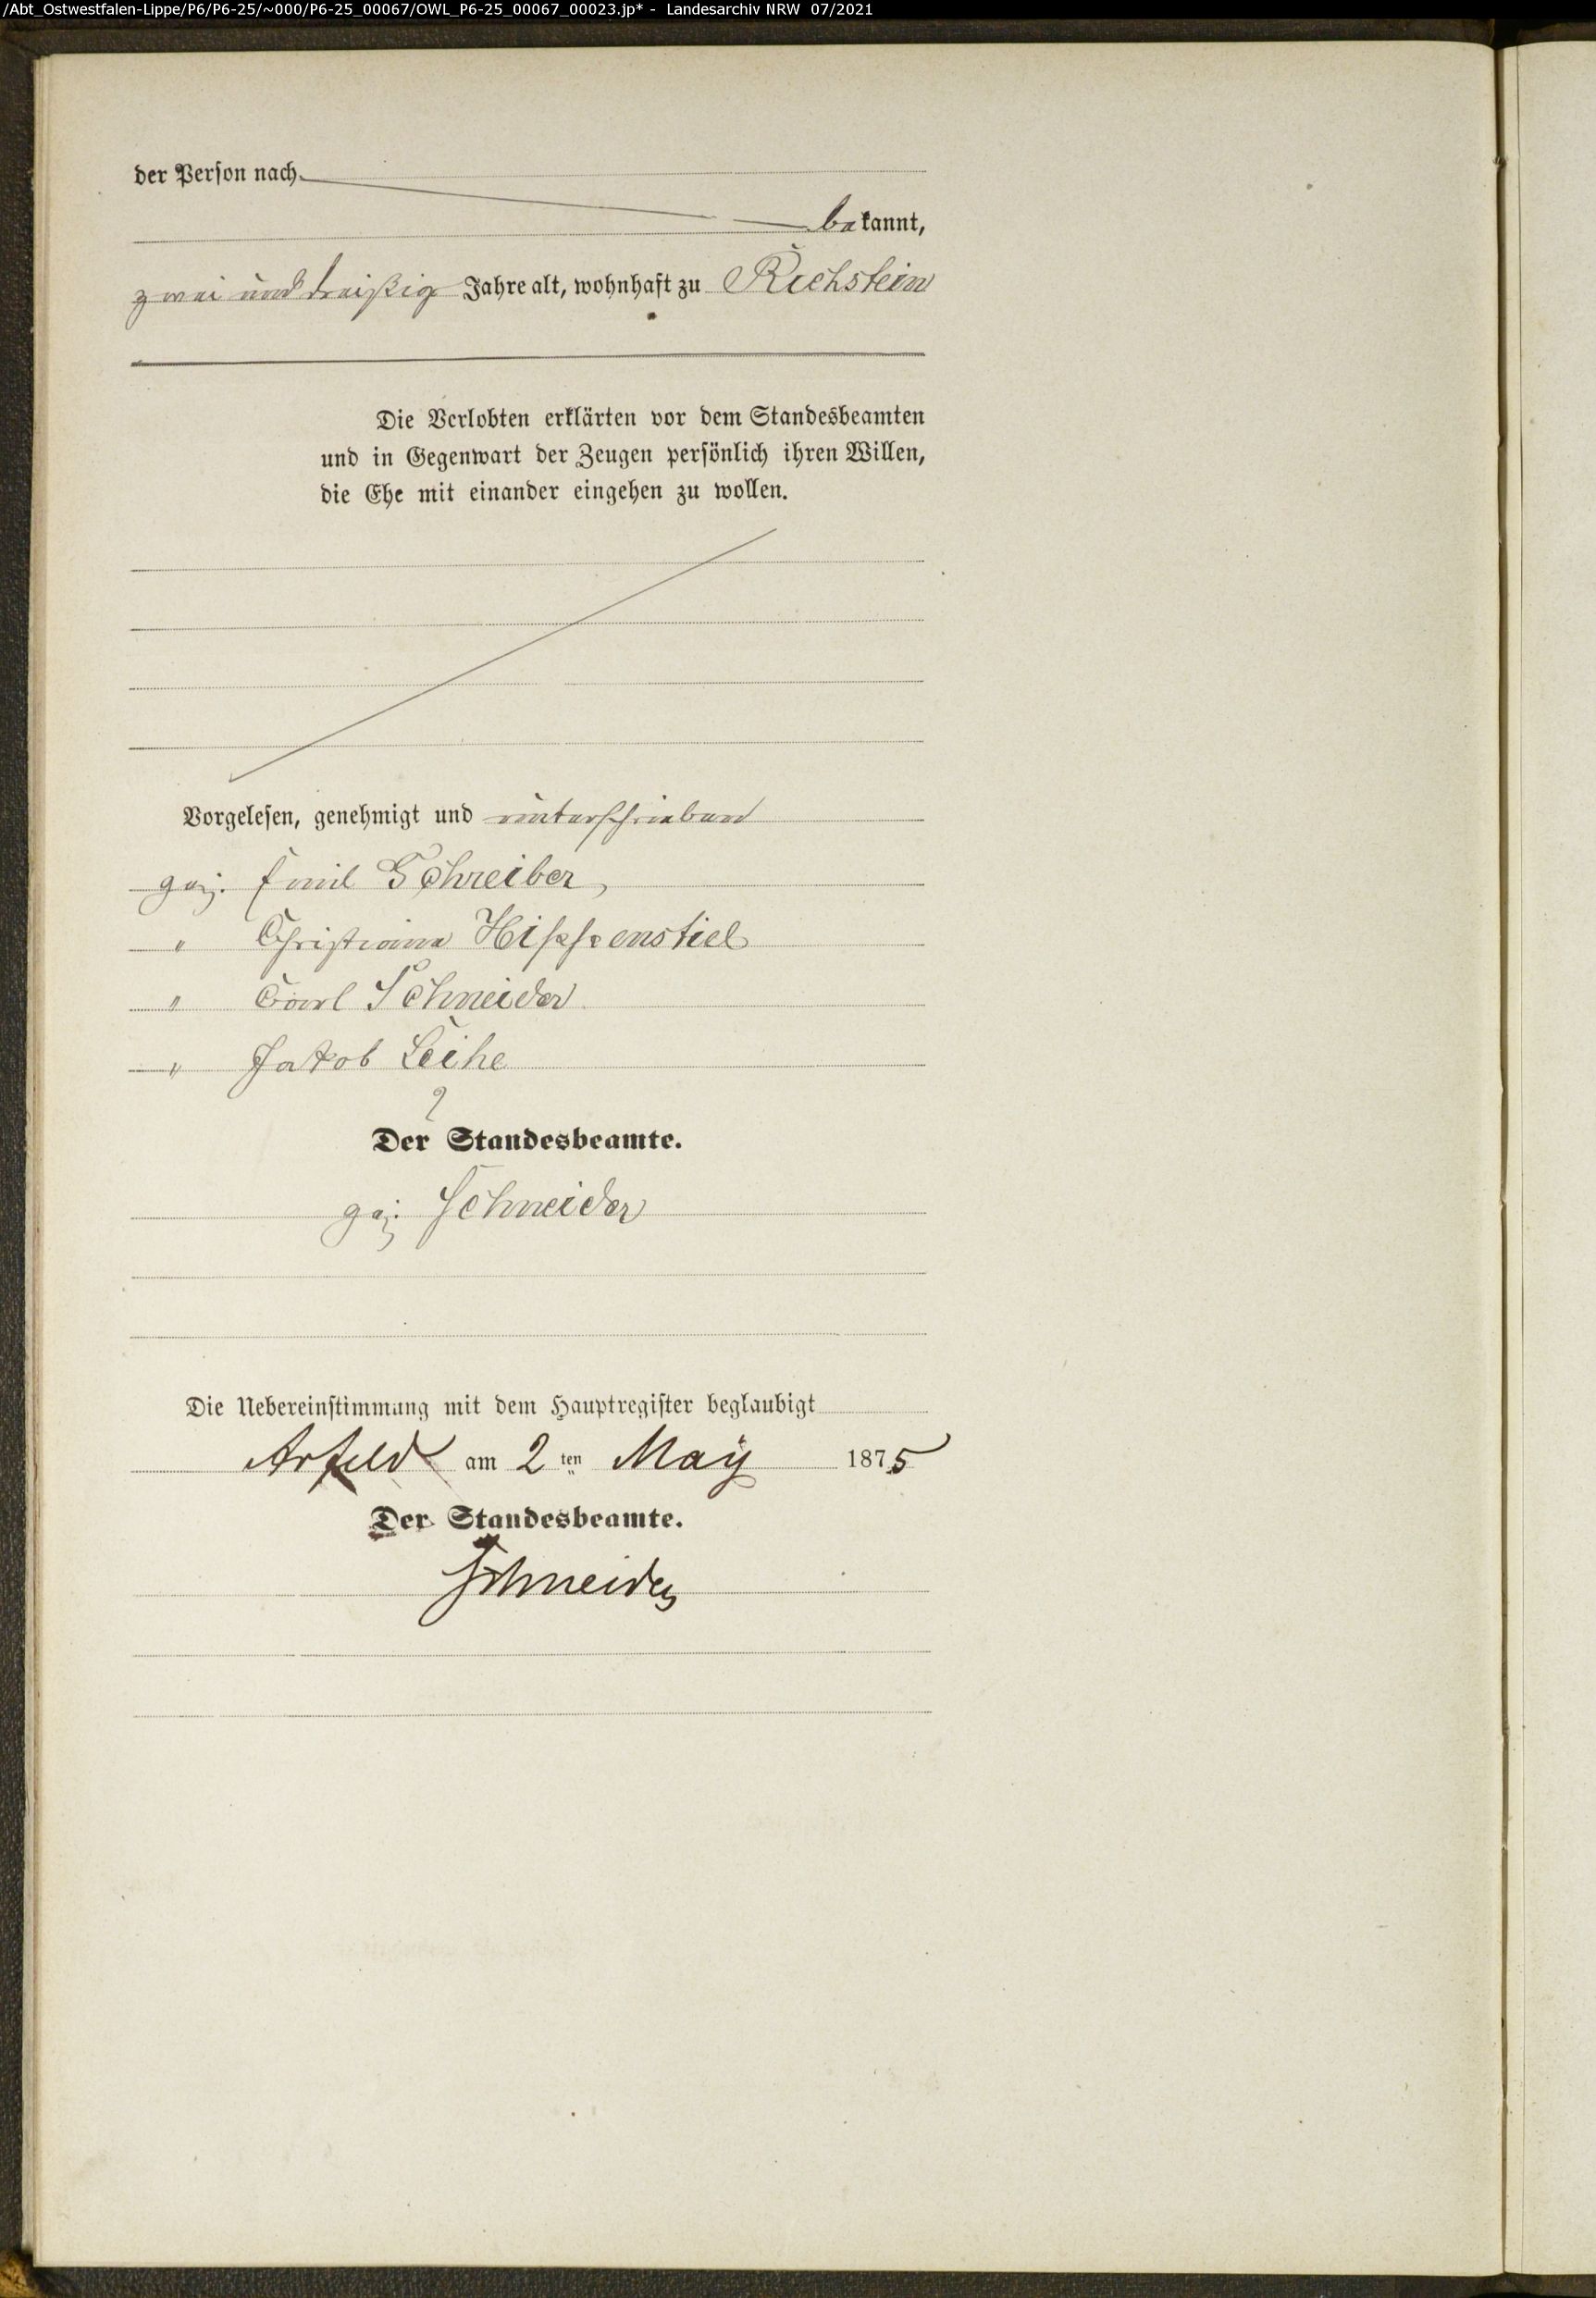 /Abt_Ostwestfalen-Lippe/P6/P6-25/~000/P6-25_00067/OWL_P6-25_00067_00023.jp* - Landesarchiv NRW 07/2021
der Person nach
bekannt,
zwei und dreißig Jahre alt, wohnhaft zu Richstein
Die Verlobten erklärten vor dem Standesbeamten
und in Gegenwart der Zeugen persönlich ihren Willen,
die Ehe mit einander eingehen zu wollen.
Vorgelesen, genehmigt und unterschrieben
gez. Emil Schreiber,
" Christiane Hippenstiel
" Carl Schneider
" Jakob
Der Standesbeamte.
gez. Schneider
Die Uebereinstimmung mit dem Hauptregister beglaubigt
Arfeld am 2 ten May 1875
Der Standesbeamte.
Schneider